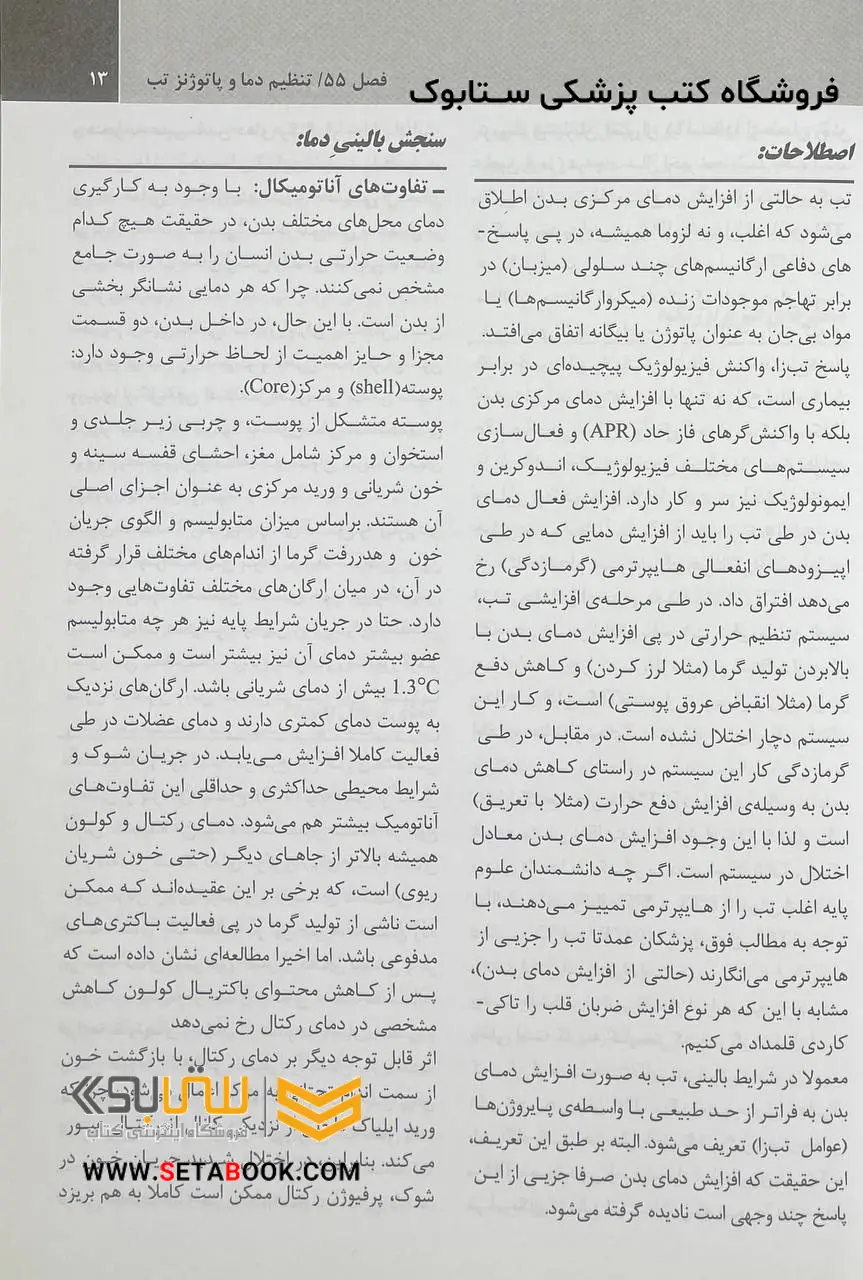 فروشگاه کتب پزشکی ستابوک
فصل ۵۵/ تنظیم دما و پاتوژنز تب
۱۳
اصطلاحات:
تب به حالتی از افزایش دمای مرکزی بدن اطلاق
می‌شود که اغلب، و نه لزوما همیشه، در پی پاسخ-
های دفاعی ارگانیسم‌های چند سلولی (میزبان) در
برابر تهاجم موجودات زنده (میکروارگانیسم‌ها) یا
مواد بی‌جان به عنوان پاتوژن یا بیگانه اتفاق می‌افتد.
پاسخ تب‌زا، واکنش فیزیولوژیک پیچیده‌ای در برابر
بیماری است، که نه تنها با افزایش دمای مرکزی بدن
بلکه با واکنش‌گرهای فاز حاد (APR) و فعال‌سازی
سیستم‌های مختلف فیزیولوژیک، اندوکرین و
ایمونولوژیک نیز سر و کار دارد. افزایش فعال دمای
بدن در طی تب را باید از افزایش دمایی که در طی
اپیزودهای انفعالی هایپرترمی (گرمازدگی) رخ
می‌دهد افتراق داد. در طی مرحله‌ی افزایشی تب،
سیستم تنظیم حرارتی در پی افزایش دمای بدن با
بالابردن تولید گرما (مثلا لرز کردن) و کاهش دفع
گرما (مثلا انقباض عروق پوستی) است، و کار این
سیستم دچار اختلال نشده است. در مقابل، در طی
گرمازدگی کار این سیستم در راستای کاهش دمای
بدن به وسیله‌ی افزایش دفع حرارت (مثلا با تعریق)
است و لذا با این وجود افزایش دمای بدن معادل
اختلال در سیستم است. اگر چه دانشمندان علوم
پایه اغلب تب را از هایپرترمی تمییز می‌دهند، با
توجه به مطالب فوق، پزشکان عمدتا تب را جزیی از
هایپرترمی می‌انگارند (حالتی از افزایش دمای بدن)،
مشابه با این که هر نوع افزایش ضربان قلب را تاکی-
کاردی قلمداد می‌کنیم.
معمولا در شرایط بالینی، تب به صورت افزایش دمای
بدن به فراتر از حد طبیعی با واسطه‌ی پایروژن‌ها
(عوامل تب‌زا) تعریف می‌شود. البته بر طبق این تعریف،
این حقیقت که افزایش دمای بدن صرفا جزیی از این
پاسخ چند وجهی است نادیده گرفته می‌شود.
سنجش بالینیِ دما:
ـ تفاوت‌های آناتومیکال: با وجود به کارگیری
دمای محل‌های مختلف بدن، در حقیقت هیچ کدام
وضعیت حرارتی بدن انسان را به صورت جامع
مشخص نمی‌کنند. چرا که هر دمایی نشانگر بخشی
از بدن است. با این حال، در داخل بدن، دو قسمت
مجزا و حایز اهمیت از لحاظ حرارتی وجود دارد:
پوسته(shell) و مرکز(Core).
پوسته متشکل از پوست، و چربی زیر جلدی و
استخوان و مرکز شامل مغز، احشای قفسه سینه و
خون شریانی و ورید مرکزی به عنوان اجزای اصلی
آن هستند. براساس میزان متابولیسم و الگوی جریان
خون و هدررفت گرما از اندام‌های مختلف قرار گرفته
در آن، در میان ارگان‌های مختلف تفاوت‌هایی وجود
دارد. حتا در جریان شرایط پایه نیز هر چه متابولیسم
عضو بیشتر دمای آن نیز بیشتر است و ممکن است
1.3°C بیش از دمای شریانی باشد. ارگان‌های نزدیک
به پوست دمای کمتری دارند و دمای عضلات در طی
فعالیت کاملا افزایش می‌یابد. در جریان شوک و
شرایط محیطی حداکثری و حداقلی این تفاوت‌های
آناتومیک بیشتر هم می‌شود. دمای رکتال و کولون
همیشه بالاتر از جاهای دیگر (حتی خون شریان
ریوی) است، که برخی بر این عقیده‌اند که ممکن
است ناشی از تولید گرما در پی فعالیت باکتری‌های
مدفوعی باشد. اما اخیرا مطالعه‌ای نشان داده است که
پس از کاهش محتوای باکتریال کولون کاهش
مشخصی در دمای رکتال رخ نمی‌دهد
اثر قابل توجه دیگر بر دمای رکتال، با بازگشت خون
از سمت اندام تحتانی به مرکز اعمال می‌شود چرا که
ورید ایلیاک از نزدیکی کانال عبور
می‌کند. بنابراین در اختلال شدید جریان خون در
شوک، پرفیوژن رکتال ممکن است کاملا به هم بریزد
ستابوک
فروشگاه اینترنتی کتاب
WWW.SETABOOK.COM